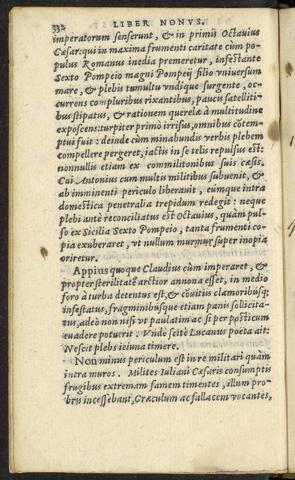 332 LIBER NONVS.
imperatorum senserunt, & in primis Octauius
Cæsar: qui in maxima frumenti caritate cùm po-
pulus Romanus inedia premeretur, infestante
Sexto Pompeio magni Pompeij filio vniuersum
mare, & plebis tumultu vndique surgente, oc-
currens compluribus rixantibus, paucis satelliti-
bus stipatus, & rationem querelæ à multitudine
exposcens: turpiter primò irrisus, omnibus cōtem-
ptui fuit: deinde cùm minabundis verbis plebem
compellere pergeret, iactis in se telis repulsus est:
nonnullis etiam ex commilitonibus suis cæsis.
Cui Antonius cum multis militibus subuenit, &
ab imminenti periculo liberauit, eúmque intra
domestica penetralia trepidum redegit: neque
plebi antè reconciliatus est Octauius, quàm pul-
so ex Sicilia Sexto Pompeio, tanta frumenti co-
pia exuberaret, vt nullum murmur super inopia
oriretur.
Appius quoque Claudius cùm imperaret, &
propter sterilitatē arctior annona esset, in medio
foro à turba detentus est, & cōuitiis clamoribúsq;
infestatus, fragminibúsque etiam panis sollicita-
tus, adeò non nisi vt paulatim ac si per posticum
euadere potuerit. Vnde scitè Lucanus poëta ait:
Nescit plebs ieiuna timere.
Non minus periculum est in re militari quàm
intra muros. Milites Iuliani Cæsaris consumptis
frugibus extremam famem timentes, illum pro-
bris incessebant, Græculum ac fallacem vocantes,